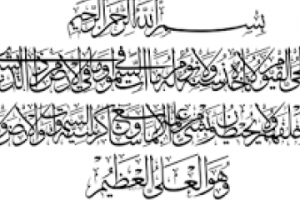 بسم الله الرحمن الرحيم
القيوم لا تأخذه سنة ولا نوم له ما في السموات وما في الأرض من ذا الذي
خلفهم ولا يحيطون بشيء من علمه إلا بما شاء وسع كرسيه السموات والأرض
وهو العلي العظيم